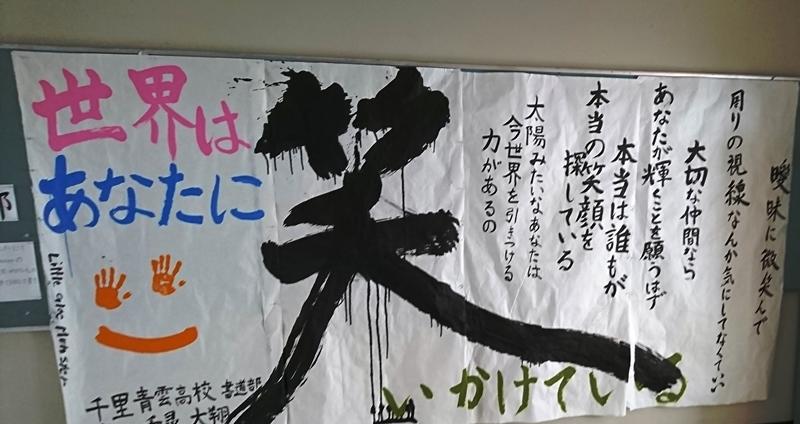 曖昧に微笑んで
周りの視線なんか気にしてなくていい
大切な仲間なら
あなたが輝くことを願うはず
本当は誰もが
本当の笑顔を
探している
太陽みたいなあなたは
今世界を引きつける
力があるの
世界は
あなたに
笑
いかけている
Little Glee Monster
千里青雲高校 書道部
大翔